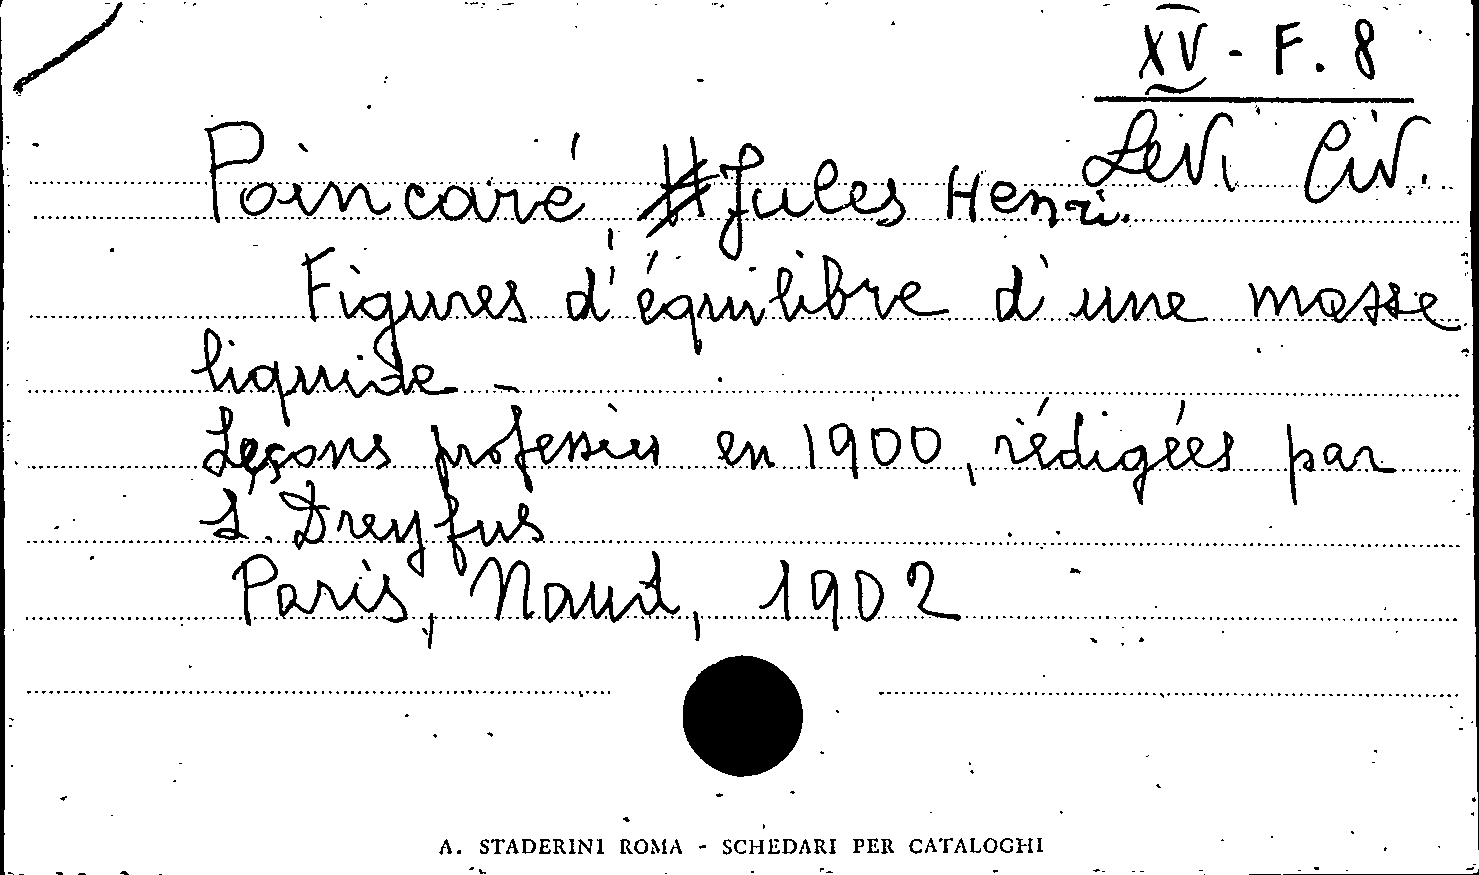 XV - F. 8
Levi Civ.
Poincaré, Jules Henri.
Figures d'équilibre d'une masse
liquide -
Leçons professies en 1900, rédigées par
L. Dreyfus
Paris, Naud, 1902
A. STADERINI ROMA - SCHEDARI PER CATALOGHI